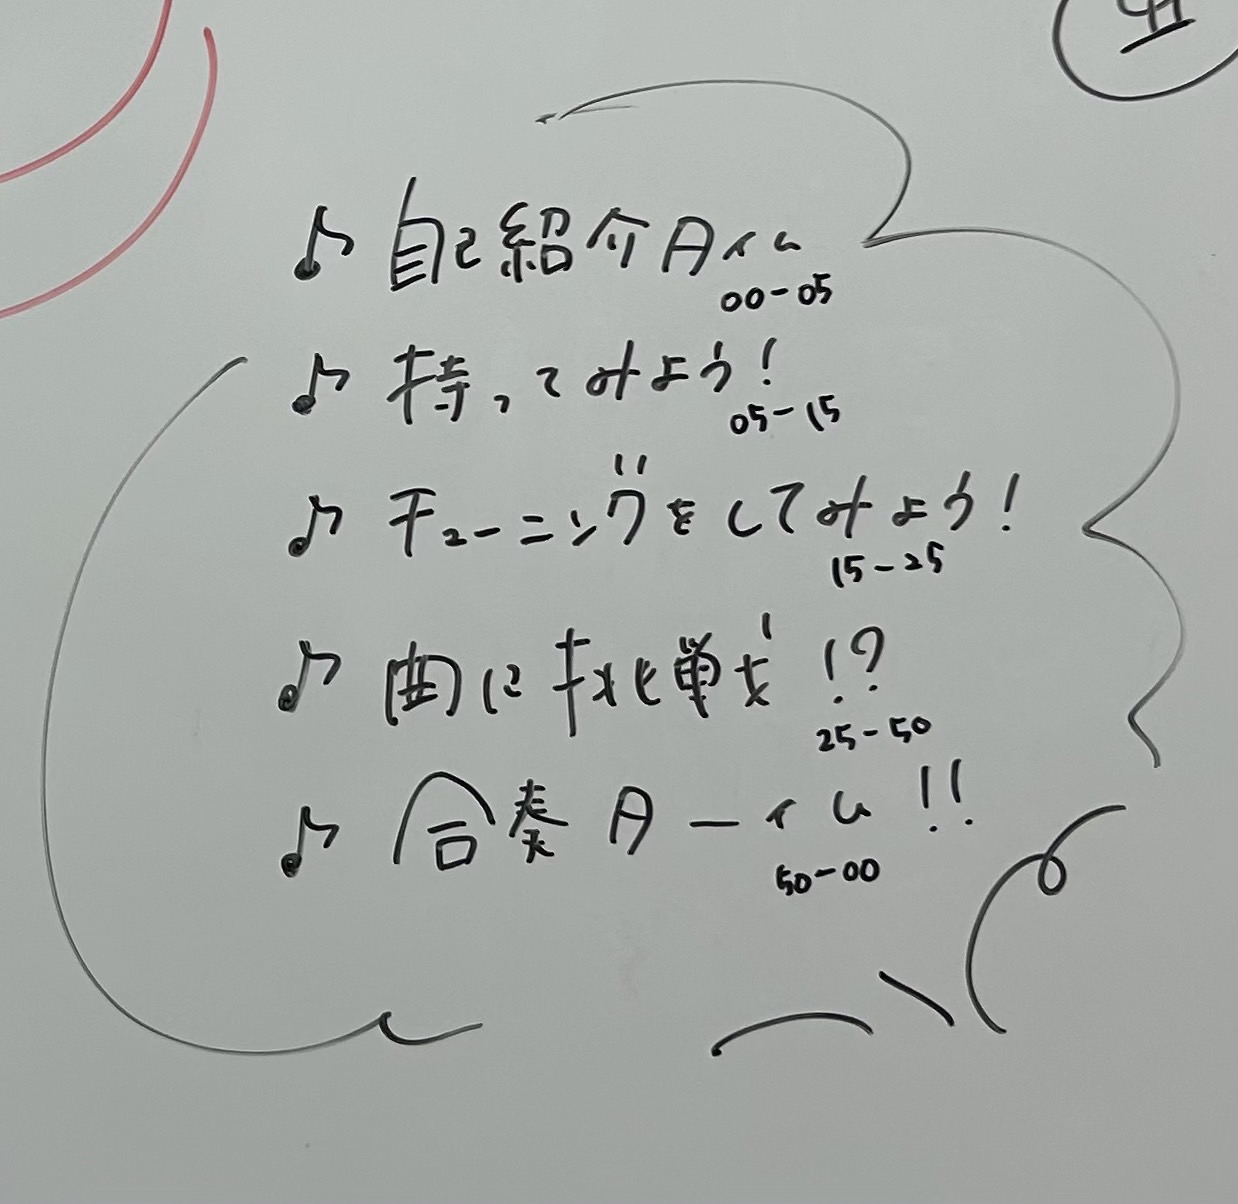 ♪ 自己紹介タイム
00-05
♪ 持ってみよう!
05-15
♪ チューニングをしてみよう!
15-25
♪ 曲に挑戦!?
25-50
♪ 合奏ターイム!!
50-00